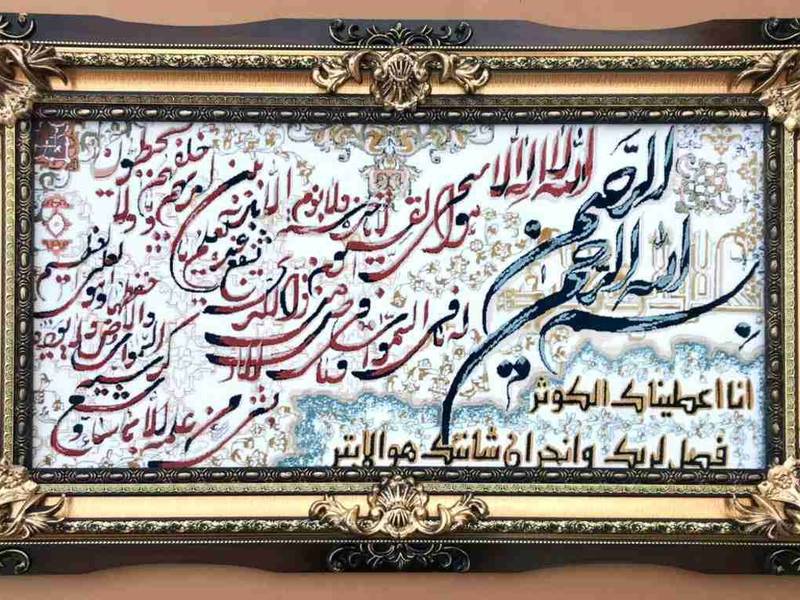 بسم الله الرحمن الرحیم
الله لا اله الا هو الحی القیوم
لا تاخذه سنة ولا نوم
له ما فی السموات وما فی الارض
من ذا الذی یشفع عنده الا باذنه
یعلم ما بین ایدیهم وما خلفهم
ولا یحیطون
بشیء من علمه الا بما شاء
وسع کرسیه السموات والارض
ولا یوده حفظهما وهو العلی العظیم
انا اعطیناک الکوثر
فصل لربک وانحر ان شانئک هو الابتر